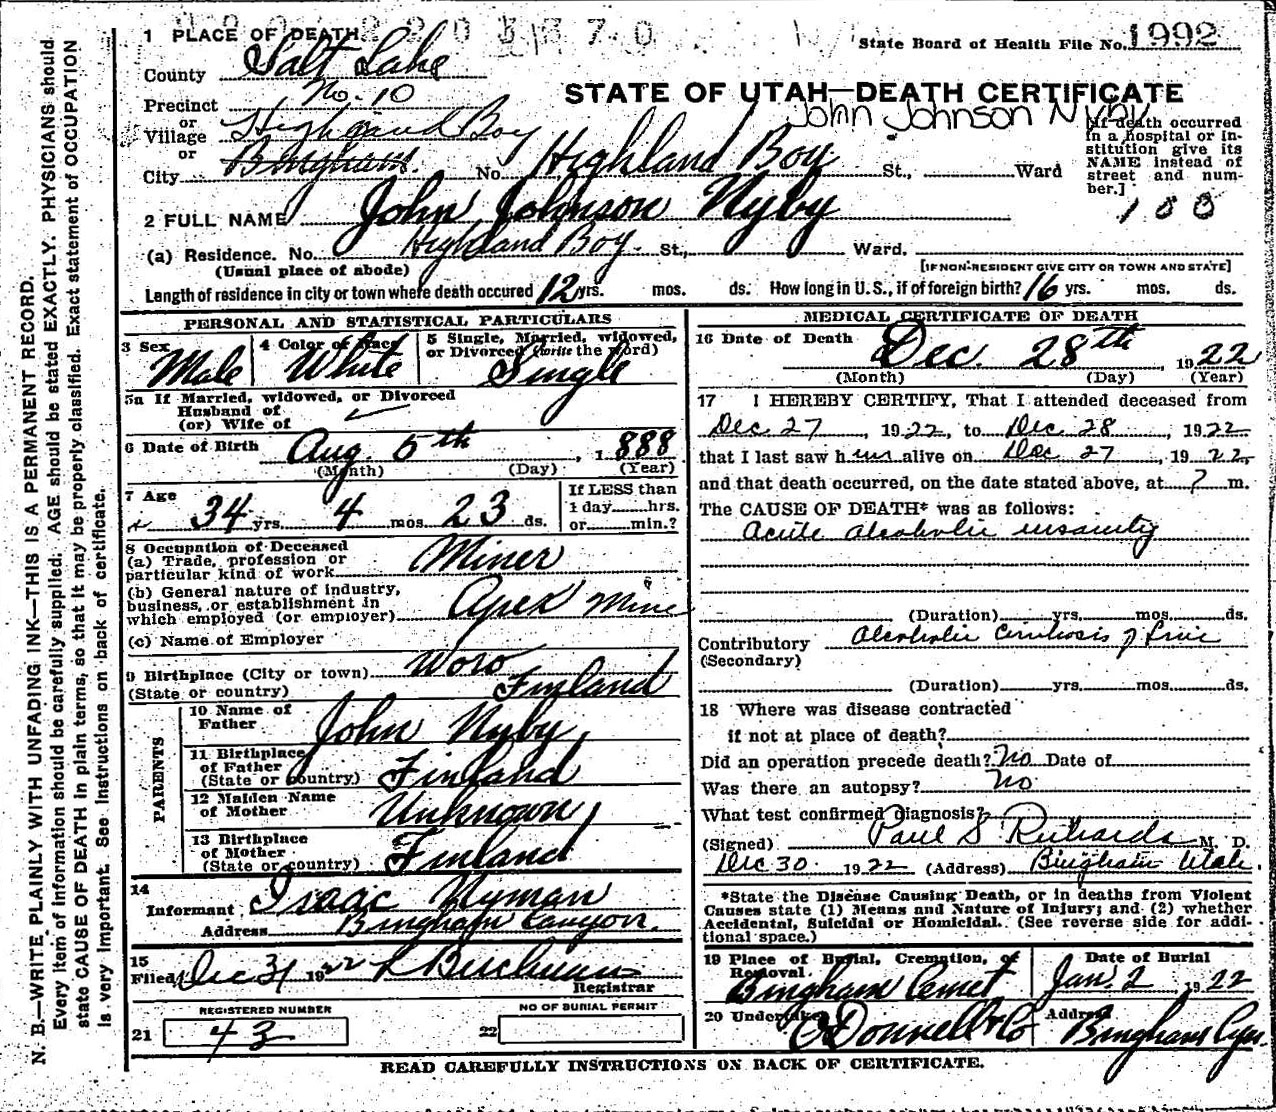 1 PLACE OF DEATH
State Board of Health File No. 1992
County Salt Lake
Precinct No. 10
STATE OF UTAH—DEATH CERTIFICATE
or
Village Highland Boy
John Johnson Nyby
or
City Bingham No. Highland Boy St., Ward
[If death occurred
in a hospital or in-
stitution give its
NAME instead of
street and num-
ber.]
100
2 FULL NAME John Johnson Nyby
(a) Residence. No. Highland Boy St., Ward.
(Usual place of abode)
[IF NON-RESIDENT GIVE CITY OR TOWN AND STATE]
Length of residence in city or town where death occured 12 yrs. mos. ds. How long in U. S., if of foreign birth? 16 yrs. mos. ds.
PERSONAL AND STATISTICAL PARTICULARS
3 Sex Male
4 Color or Race White
5 Single, Married, widowed,
or Divorced (write the word)
Single
5a If Married, widowed, or Divorced
Husband of
(or) Wife of
6 Date of Birth Aug. 5th, 1888
(Month) (Day) (Year)
7 Age
34 yrs. 4 mos. 23 ds.
If LESS than
1 day......hrs.
or......min.?
8 Occupation of Deceased
(a) Trade, profession or
particular kind of work Miner
(b) General nature of industry,
business, or establishment in
which employed (or employer) Apex Mine
(c) Name of Employer
9 Birthplace (City or town) Woro
(State or country) Finland
PARENTS
10 Name of
Father John Nyby
11 Birthplace
of Father
(State or country) Finland
12 Maiden Name
of Mother Unknown
13 Birthplace
of Mother
(State or country) Finland
14
Informant Isaac Nyman
Address Bingham Canyon.
15
Filed Dec 31 1922
Registrar
REGISTERED NUMBER
21 43
NO OF BURIAL PERMIT
22
MEDICAL CERTIFICATE OF DEATH
16 Date of Death Dec. 28th 1922
(Month) (Day) (Year)
17 I HEREBY CERTIFY, That I attended deceased from
Dec. 27, 1922, to Dec 28, 1922
that I last saw him alive on Dec 27, 1922,
and that death occurred, on the date stated above, at ? m.
The CAUSE OF DEATH* was as follows:
Acute alcoholic insanity
(Duration) yrs. mos. ds.
Contributory Alcoholic Cirrhosis of liver
(Secondary)
(Duration) yrs. mos. ds.
18 Where was disease contracted
if not at place of death?
Did an operation precede death? No Date of
Was there an autopsy? No
What test confirmed diagnosis?
(Signed) Paul S Richards M. D.
Dec 30 1922 (Address) Bingham Utah.
*State the Disease Causing Death, or in deaths from Violent
Causes state (1) Means and Nature of Injury; and (2) whether
Accidental, Suicidal or Homicidal. (See reverse side for addi-
tional space.)
19 Place of Burial, Cremation, or
Removal
Bingham Cemet
Date of Burial
Jan. 2 1922
20 Undertaker O'Donnell & Co
Address Bingham Cyn.
READ CAREFULLY INSTRUCTIONS ON BACK OF CERTIFICATE.
N. B.—WRITE PLAINLY WITH UNFADING INK—THIS IS A PERMANENT RECORD.
Every item of information should be carefully supplied. AGE should be stated EXACTLY. PHYSICIANS should
state CAUSE OF DEATH in plain terms, so that it may be properly classified. Exact statement of OCCUPATION
is very important. See instructions on back of certificate.